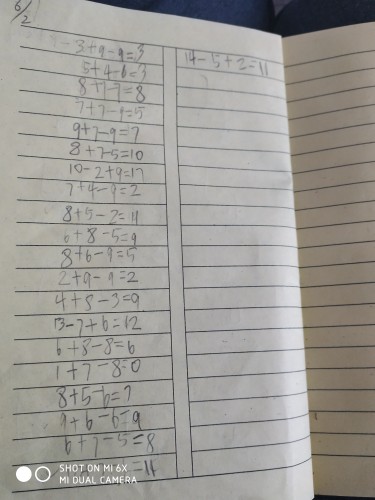 6/2
- 3 + 9 - 9 = 3
5 + 4 - 6 = 3
8 + 7 - 7 = 8
7 + 7 - 9 = 5
9 + 7 - 9 = 7
8 + 7 - 5 = 10
10 - 2 + 9 = 17
7 + 4 - 9 = 2
8 + 5 - 2 = 11
6 + 8 - 5 = 9
8 + 6 - 9 = 5
2 + 9 - 9 = 2
4 + 8 - 3 = 9
13 - 7 + 6 = 12
6 + 8 - 8 = 6
1 + 7 - 8 = 0
8 + 5 - 6 = 7
9 + 6 - 6 = 9
6 + 7 - 5 = 8
= 11
14 - 5 + 2 = 11
SHOT ON MI 6X
MI DUAL CAMERA